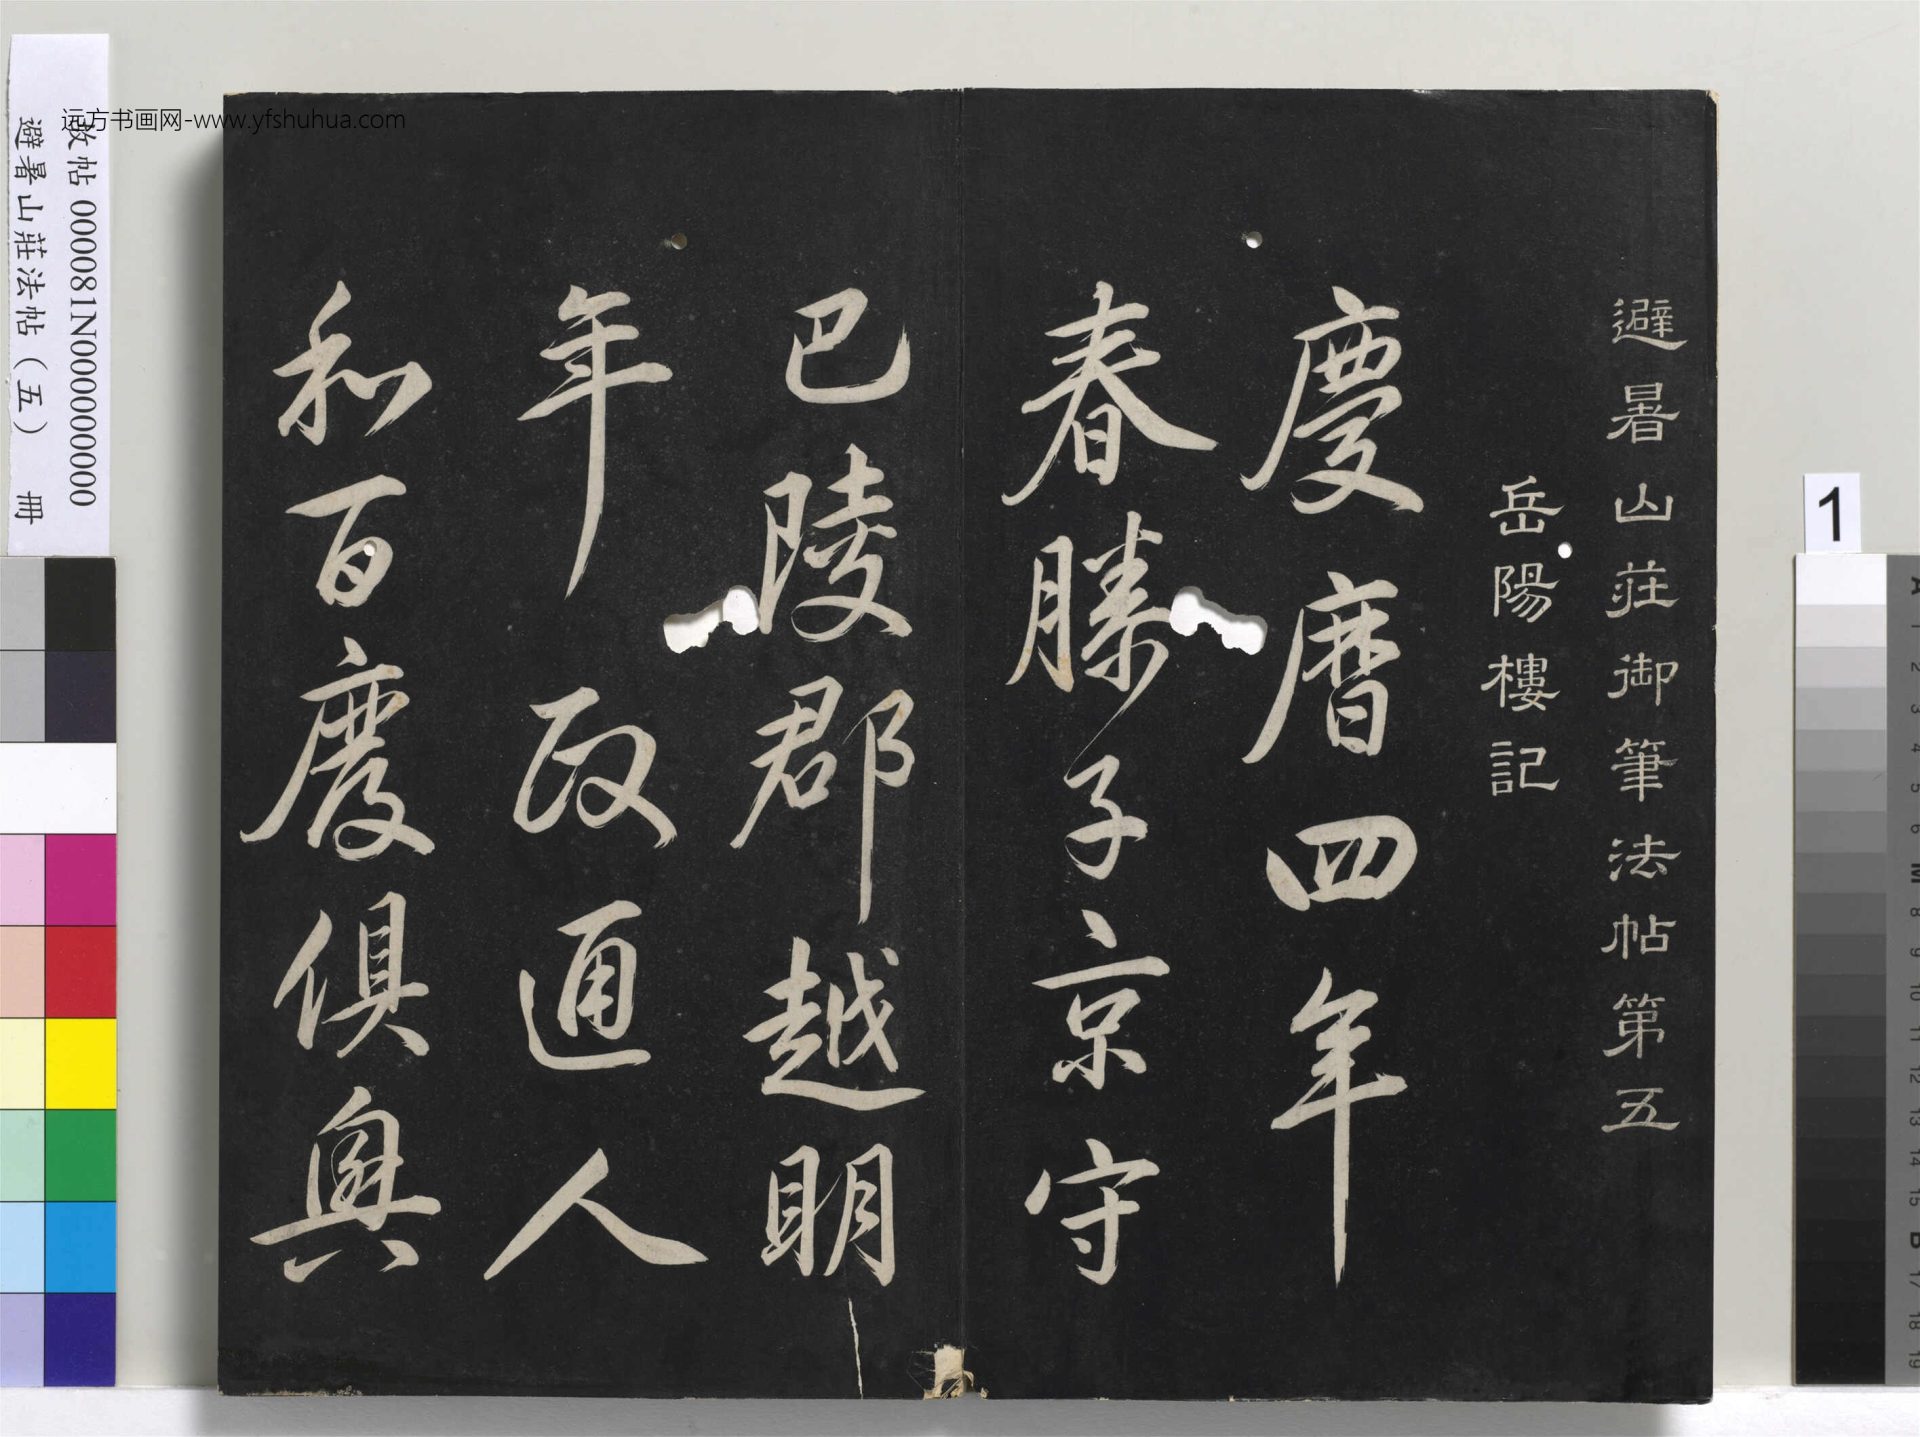 避暑山莊御筆法帖第五
岳陽樓記
慶曆四年
春滕子京守
巴陵郡越明
年政通人
和百廢俱興
远方书画网-www.yfshuhua.com
故帖 000081N000000000
避暑山莊法帖（五） 冊
1
A 1 2 3 4 5 6 M 8 9 10 11 12 13 14 15 B 17 18 19